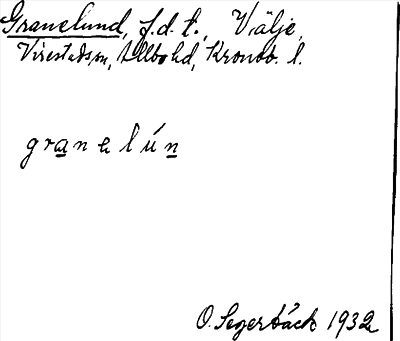 Granelund, f.d. t., Välje,
Virestads sn, Allbo hd, Kronob. l.
granelún
O. Segerbäck 1932